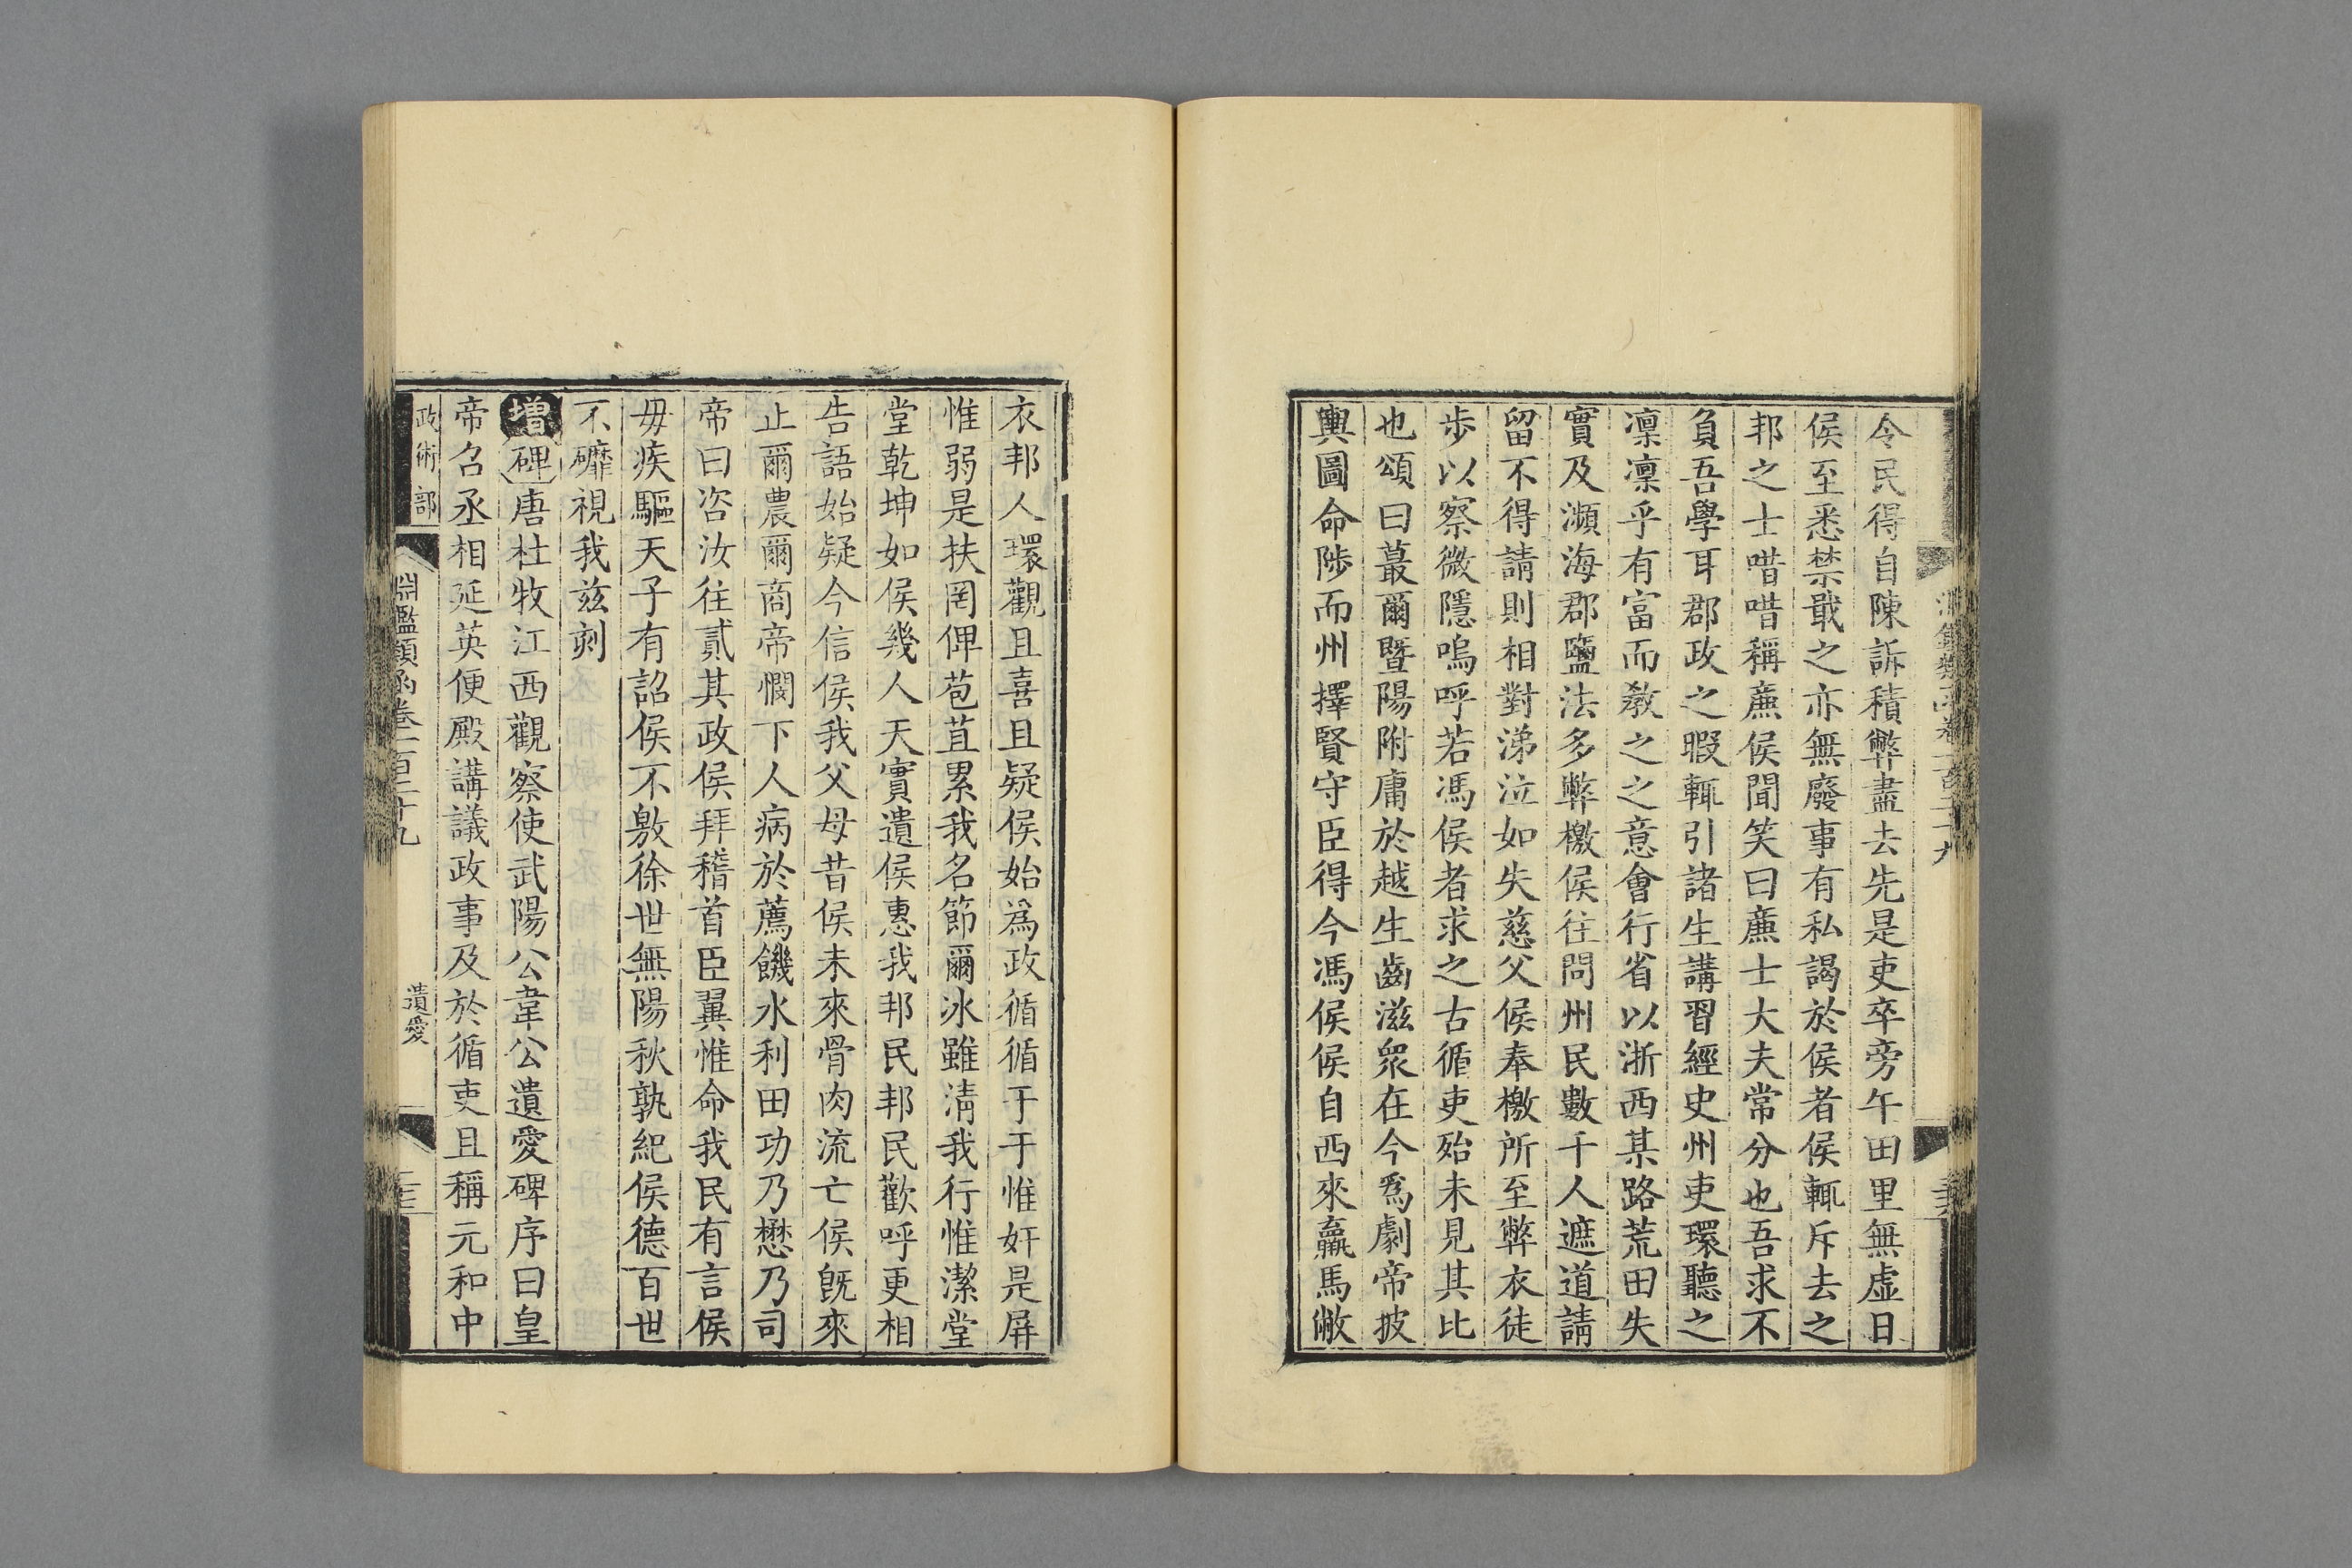 令民得自陳訴積弊盡去先是吏卒旁午田里無虛日
侯至悉禁戢之亦無廢事有私謁於侯者侯輒斥去之
邦之士喈喈稱廉侯聞笑曰廉士大夫常分也吾求不
負吾學耳郡政之暇輒引諸生講習經史州吏環聽之
凜凜乎有富而敎之之意會行省以浙西某路荒田失
實及瀕海郡鹽法多弊檄侯往問州民數千人遮道請
留不得請則相對涕泣如失慈父侯奉檄所至弊衣徒
步以察微隱嗚呼若馮侯者求之古循吏殆未見其比
也頌曰蕞爾暨陽附庸於越生齒滋眾在今爲劇帝披
輿圖命陟而州擇賢守臣得今馮侯侯自西來羸馬敝
衣邦人環觀且喜且疑侯始爲政循循于于惟奸是屏
惟弱是扶罔俾苞苴累我名節爾冰雖淸我行惟潔堂
堂乾坤如侯幾人天實遺侯惠我邦民邦民歡呼更相
告語始疑今信侯我父母昔侯未來骨肉流亡侯旣來
止爾農爾商帝憫下人病於薦饑水利田功乃懋乃司
帝曰咨汝往貳其政侯拜稽首臣翼惟命我民有言侯
毋疾驅天子有詔侯不敫徐世無陽秋孰紀侯德百世
不礳視我茲刻
增碑唐杜牧江西觀察使武陽公韋公遺愛碑序曰皇
帝召丞相延英便殿講議政事及於循吏且稱元和中
政術部
淵鑑類函卷一百二十九
遺愛